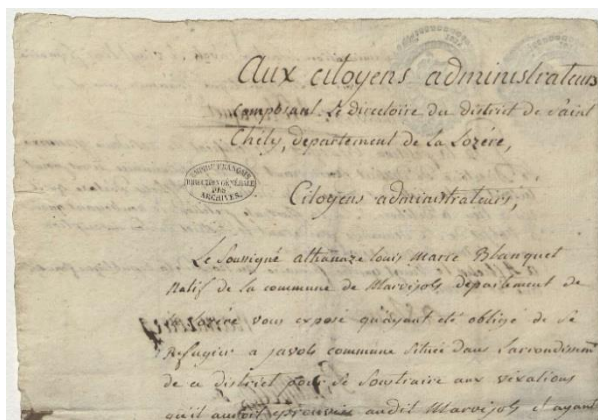 Aux citoyens administrateurs
Composant Le directoire du district de Saint
Chély, departement de la Lozére,
EMPIRE FRANÇAIS
DIRECTION GÉNÉRALE
DES
ARCHIVES.
Citoyens administrateurs,
Le Soussigné athanaze louis Marie Blanquet
Natif de la commune de Marvejols departement de
la Lozére vous expose qu'ayant eté obligé de Se
Refugier a javols commune Située dans l'arrondissem
de ce district pour Se Soustraire aux vexations
qu'il auroit eprouvées audit Marvejols et ayant